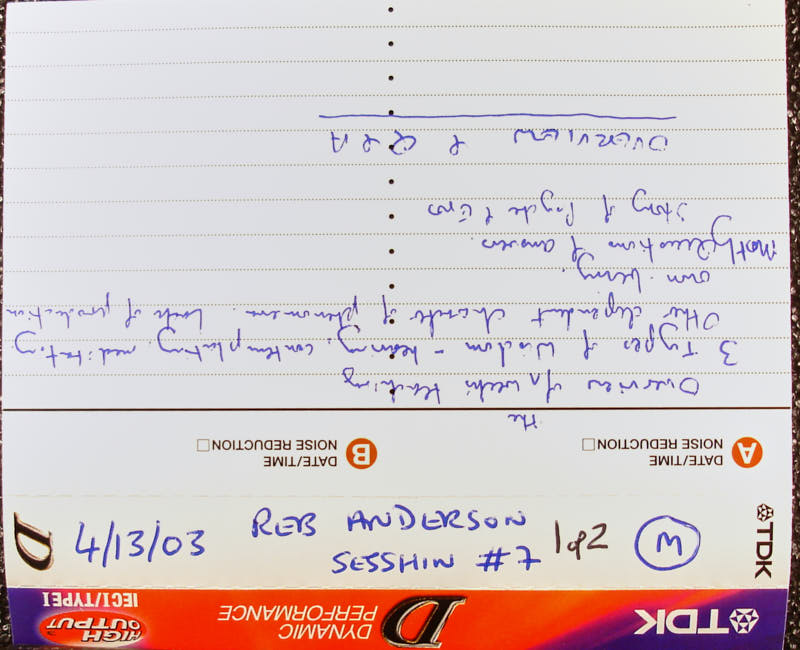 TDK D DYNAMIC PERFORMANCE HIGH OUTPUT IEC I/TYPE I
TDK
4/13/03 REB ANDERSON 1 of 2 M
SESSHIN #7
D
A DATE/TIME NOISE REDUCTION
B DATE/TIME NOISE REDUCTION
Overview of the week's teaching
3 Types of Wisdom - hearing, contemplating, meditating.
Other dependent character of phenomena. Lack of production
own-being.
Mostly of answers.
Story of Psyche & Eros
OVERVIEW & Q & A